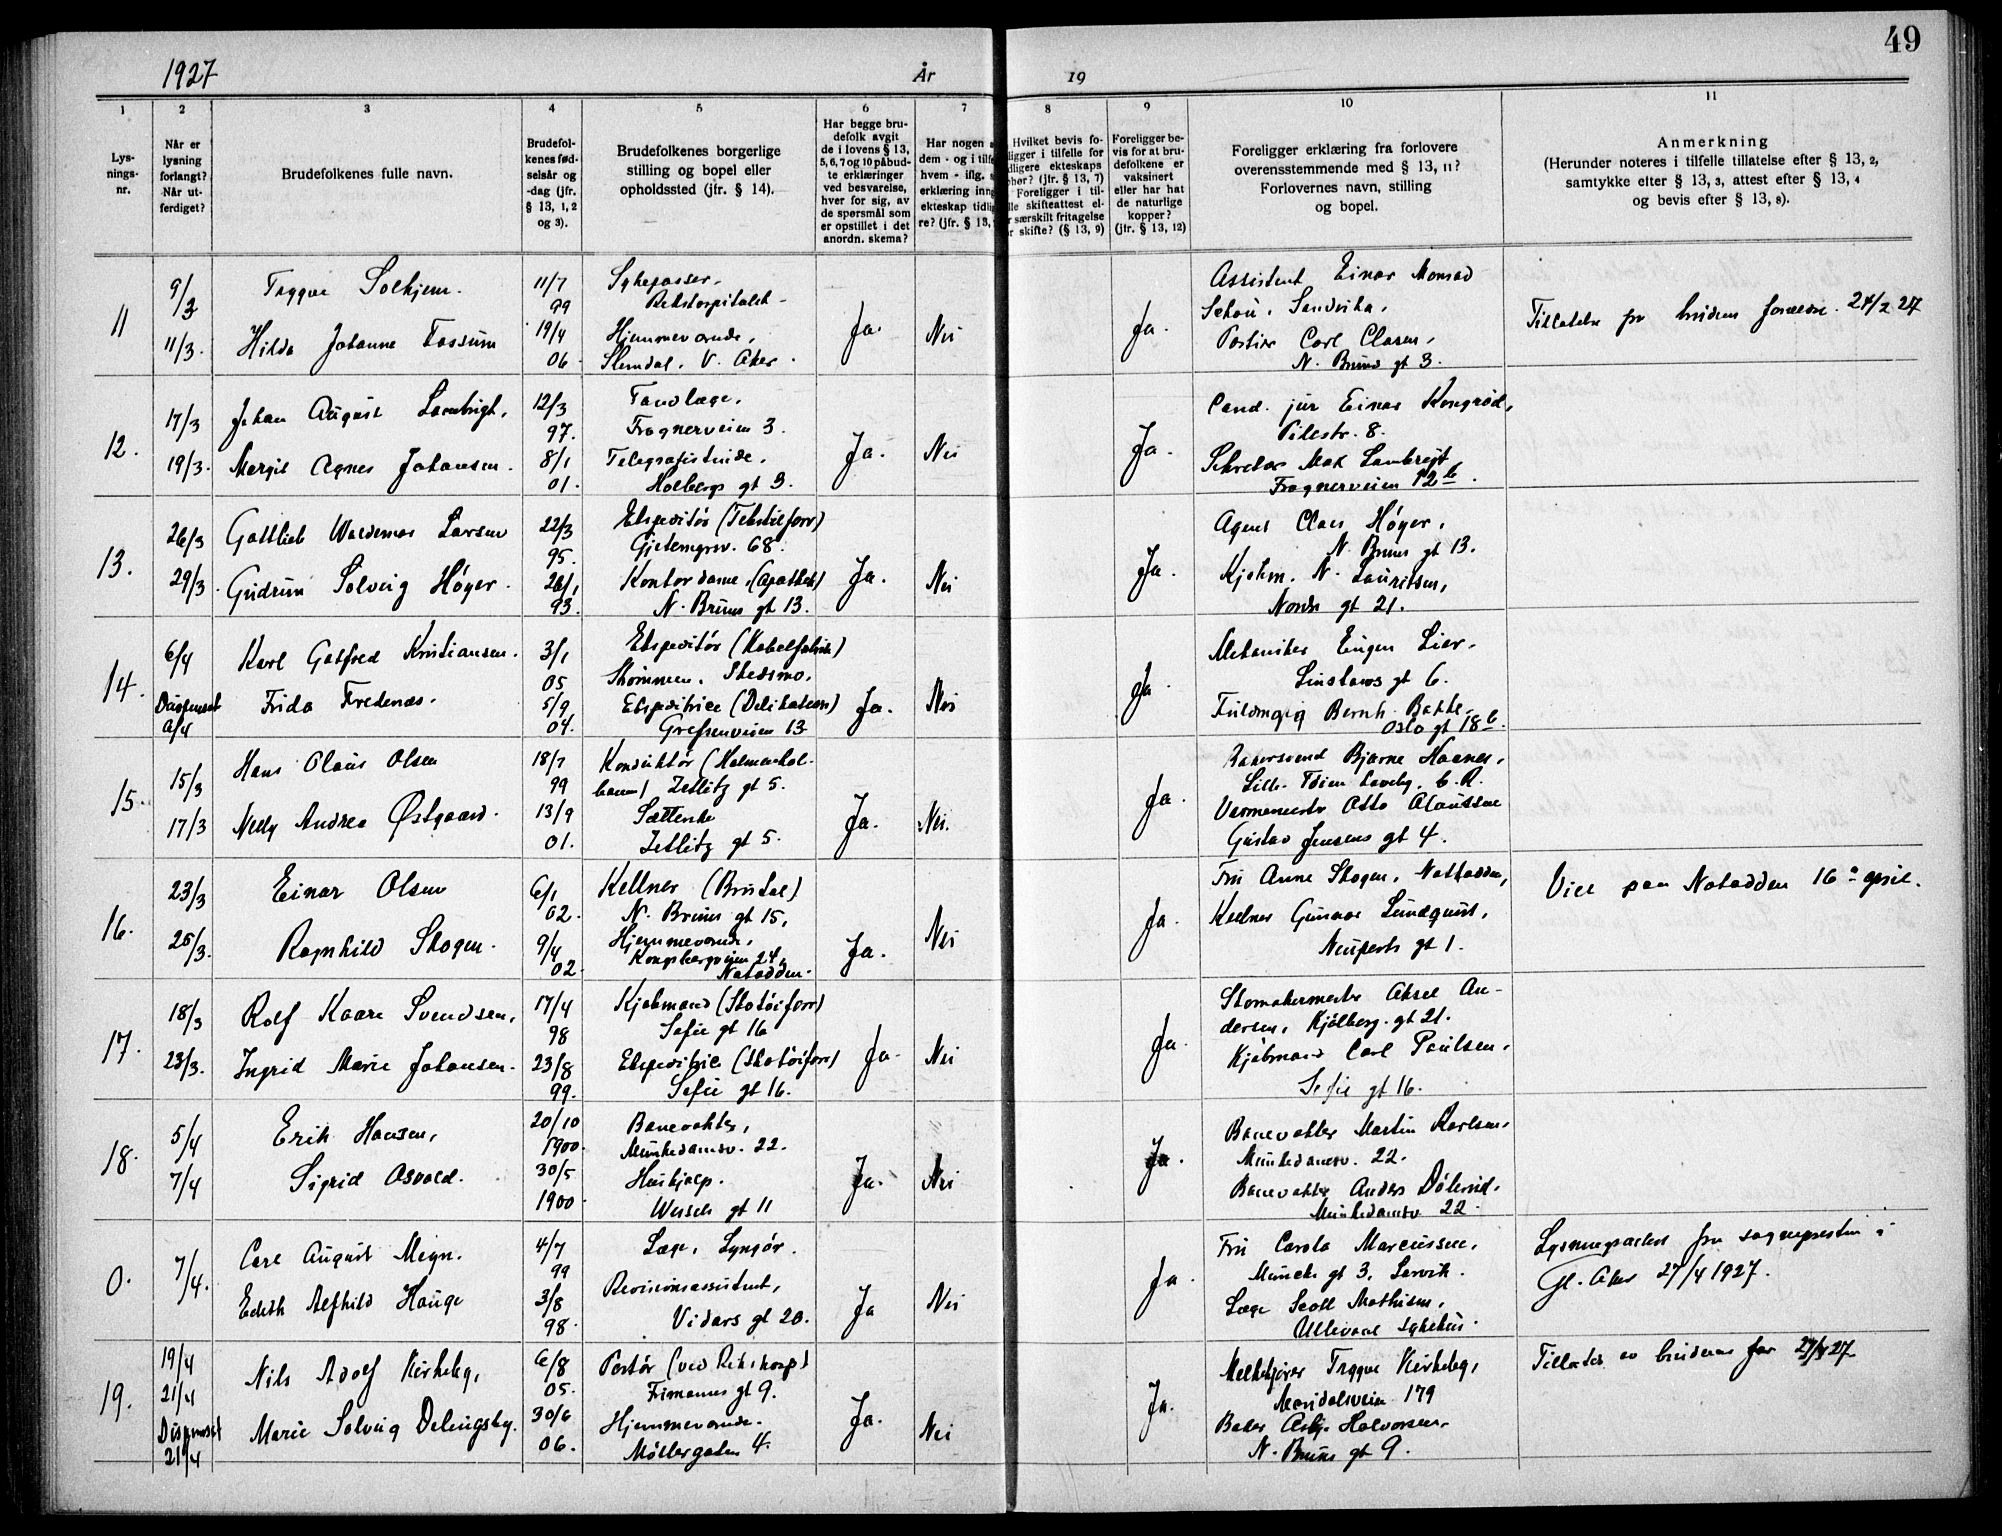 49
1927 År 19
1 2 3 4 5 6 7 8 9 10 11
Lys-
nings-
nr.
Når er
lysning
forlangt?
Når ut-
ferdiget?
Brudefolkenes fulle navn.
Brudefol-
kenes fød-
selsår og
-dag (jfr.
§ 13, 1, 2
og 3).
Brudefolkenes borgerlige
stilling og bopel eller
opholdssted (jfr. § 14).
Har begge bru-
defolk avgit
de i lovens § 13,
5, 6, 7 og 10 påbud-
te erklæringer
ved besvarelse,
hver for sig, av
de spørsmål som
er opstillet i det
anordn. skema?
Har nogen a
dem - og i tilfe
hvem - iflg. s
erklæring inng
ekteskap tidlig
re? (jfr. § 13,
Hvilket bevis fo-
ligger i tilfelle for
dligere ekteskaps
phør? (jfr. § 13, 7)
Foreligger i til-
lle skifteattest el-
r særskilt fritagelse
r skifte? (§ 13, 9)
Foreligger be-
vis for at bru-
defolkene er
vaksinert
eller har hat
de naturlige
kopper?
(jfr. § 13, 12)
Foreligger erklæring fra forlovere
overensstemmende med § 13, 11?
Forlovernes navn, stilling
og bopel.
Anmerkning
(Herunder noteres i tilfelle tillatelse efter § 13, 2,
samtykke etter § 13, 3, attest efter § 13, 4
og bevis efter § 13, 8).
11
9/3
11/3.
Tryggve Solhjem.
Hilda Johanne Fossum
11/7
99
19/4
06.
Sykepasser.
Rikshospitalet
Hjemmeværende,
Slemdal. V. Aker.
Ja.
Nei
Ja.
Assistent Einar Monrad
Schou. Sandvika.
Portier Carl Clasen,
N. Bruns gt 3.
Tillatelse fra brudens forældre. 24/2 27
12.
17/3
19/3.
Johan August Lambrigt,
Margit Agnes Johansen.
12/3
97.
8/1
01.
Tandlæge,
Frognerveien 3.
Telegrafistinde,
Holbergs gt 3.
Ja.
Nei
Ja.
Cand. jur Einar Kongrød,
Pilestr. 8.
Sekretær Max Lambrigt
Frognerveien 12 b.
13.
26/3
29/3.
Gottlieb Waldemar Larsen
Gudrun Solveig Høyer.
22/3
95.
26/1
93.
Ekspeditør (Tekstilforr)
Gjetemyrsv. 68.
Kontordame (apothek)
N. Bruns gt 13.
Ja.
Nei
Ja.
Agent Claus Høyer,
N. Bruns gt 13.
Kjøbm. N. Lauritsen,
Nordr gt 21.
14.
6/4
Dispenset
6/4
Karl Gotfred Kristiansen.
Frida Fredenæs.
3/1
05
5/9
04.
Ekspeditør (Kabelfabrik)
Strømmen. Skedsmo.
Ekspeditrice (Delikatesse)
Grefsenveien 13
Ja.
Nei
Ja.
Mekaniker Eugen Lier.
Linstows gt 6.
Fuldmægtig Bernh. Bakke.
Oslo gt 18 b.
15.
15/3
17/3
Hans Olaus Olsen
Nelly Andrea Østgaard.
18/7
99
13/9
01.
Konduktør (Holmenkol-
banen) Zetlitz gt 5.
Sætterske
Zetlitz gt 5.
Ja.
Nei.
Ja.
Bakersvend Bjarne Haanes,
Lille Tøien haveby. 6. R.
Varmemester Otto Olaussen
Gustav Jensens gt 4.
16.
23/3
25/3.
Einar Olsen
Ragnhild Skogen.
6/1
02.
9/4
02.
Kellner (Bristol)
N. Bruns gt 15,
Hjemmeværende,
Kongsbergveien 24,
Notodden.
Ja.
Nei
Ja.
Fru Anne Skogen, Notodden,
Kellner Gunnar Lundquist,
Neuperts gt 1.
Viet paa Notodden 16de april.
17.
18/3
23/3.
Rolf Kaare Svendsen,
Ingrid Marie Johansen.
17/4
98
23/8
99.
Kjøbmand (Skotøiforr)
Sofie gt 16
Ekspeditrice (Skotøiforr)
Sofie gt 16.
Ja.
Nei
Ja.
Skomakermester Aksel An-
dersen, Kjølberg. gt 21.
Kjøbmand Carl Paulsen.
Sofie gt 16.
18.
5/4
7/4
Erik Hansen,
Sigrid Osvold.
20/10
1900.
30/5
1900
Banevokter,
Munkedamsv. 22.
Hushjælp.
Wessels gt 11
Ja.
Nei
Ja.
Banevokter Martin Karlsen,
Munkedamsv. 22.
Banevokter Anders Dølerud,
Munkedamsv 22.
0.
7/4.
Carl August Meyn.
Edith Alfhild Hauge
4/7
99
3/8
98.
Læge, Lyngør.
Revisionsassistent,
Vidars gt 20.
Ja
Nei
Ja.
Fru Carola Marcussen,
Muncks gt 3, Larvik.
Læge Scott Mathisen,
Ullevaal sykehus.
Lysningsattest fra sognepresten i
Gl. Aker 27/4 1927.
19.
19/4
21/4
Dispenset
21/4
Nils Adolf Kirkeby,
Marie Solveig Delingsby.
6/8
05.
30/6
06.
Portør (ved Rikshosp)
Frimanns gt 9.
Hjemmeværende.
Møllergaten 4.
Ja.
Nei
Ja.
Melkekjører Trygve Kirkeby,
Maridalsveien 179
Baker Asbj. Halvorsen.
N. Bruns gt 9.
Tillatelse av brudens far 27/3 27